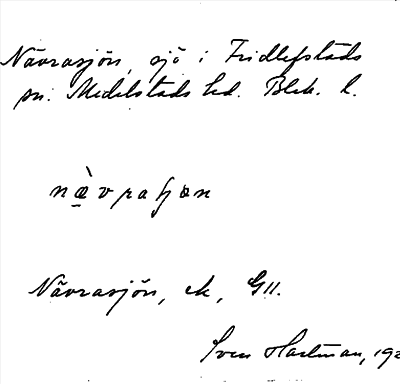 Nävrasjön, sjö i Fridlefstads
sn. Medelstads hd. Blek. l.
næ̀vraʃөn
Nävrasjön, ek, G11.
Sven Hartman, 192